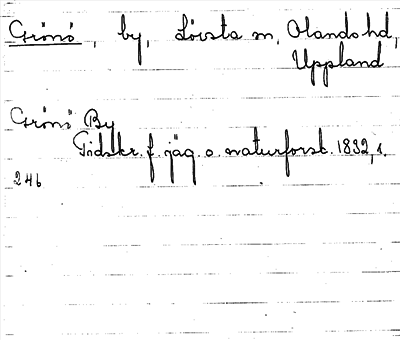 Grönö, by, Lövsta sn, Olands hd,
Uppland
Grönö By
Tidskr. f. jäg. o. naturforsk. 1832, s.
246